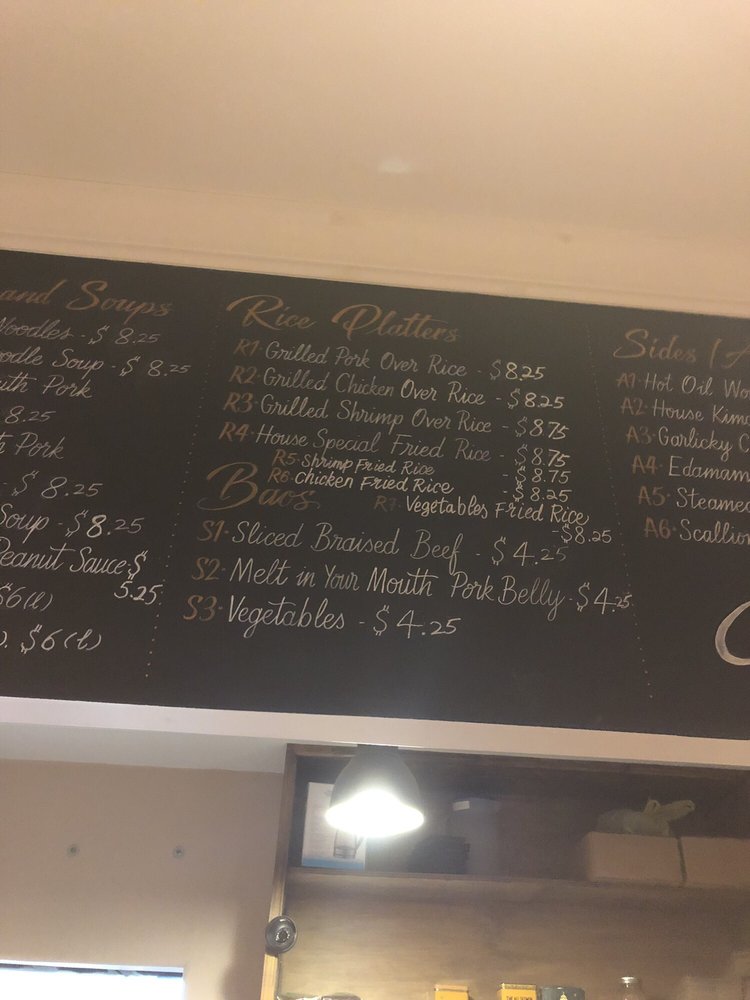 and Soups
Noodles - $ 8.25
oodle Soup - $ 8.25
outh Pork
8.25
h Pork
- $ 8.25
Soup - $8.25
Peanut Sauce - $
5.25
$6(l)
). $6(l)
Rice Platters
R1 · Grilled Pork Over Rice - $8.25
R2 · Grilled Chicken Over Rice - $8.25
R3 · Grilled Shrimp Over Rice - $8.75
R4 · House Special Fried Rice - $8.75
R5 · Shrimp Fried Rice - $8.75
R6 · Chicken Fried Rice - $8.25
R7 · Vegetables Fried Rice
- $8.25
Baos
S1 · Sliced Braised Beef - $4.25
S2 · Melt in Your Mouth Pork Belly - $4.25
S3 · Vegetables - $4.25
Sides
A1 · Hot Oil Wo
A2 · House Kimc
A3 · Garlicky C
A4 · Edamam
A5 · Steamed
A6 · Scallion